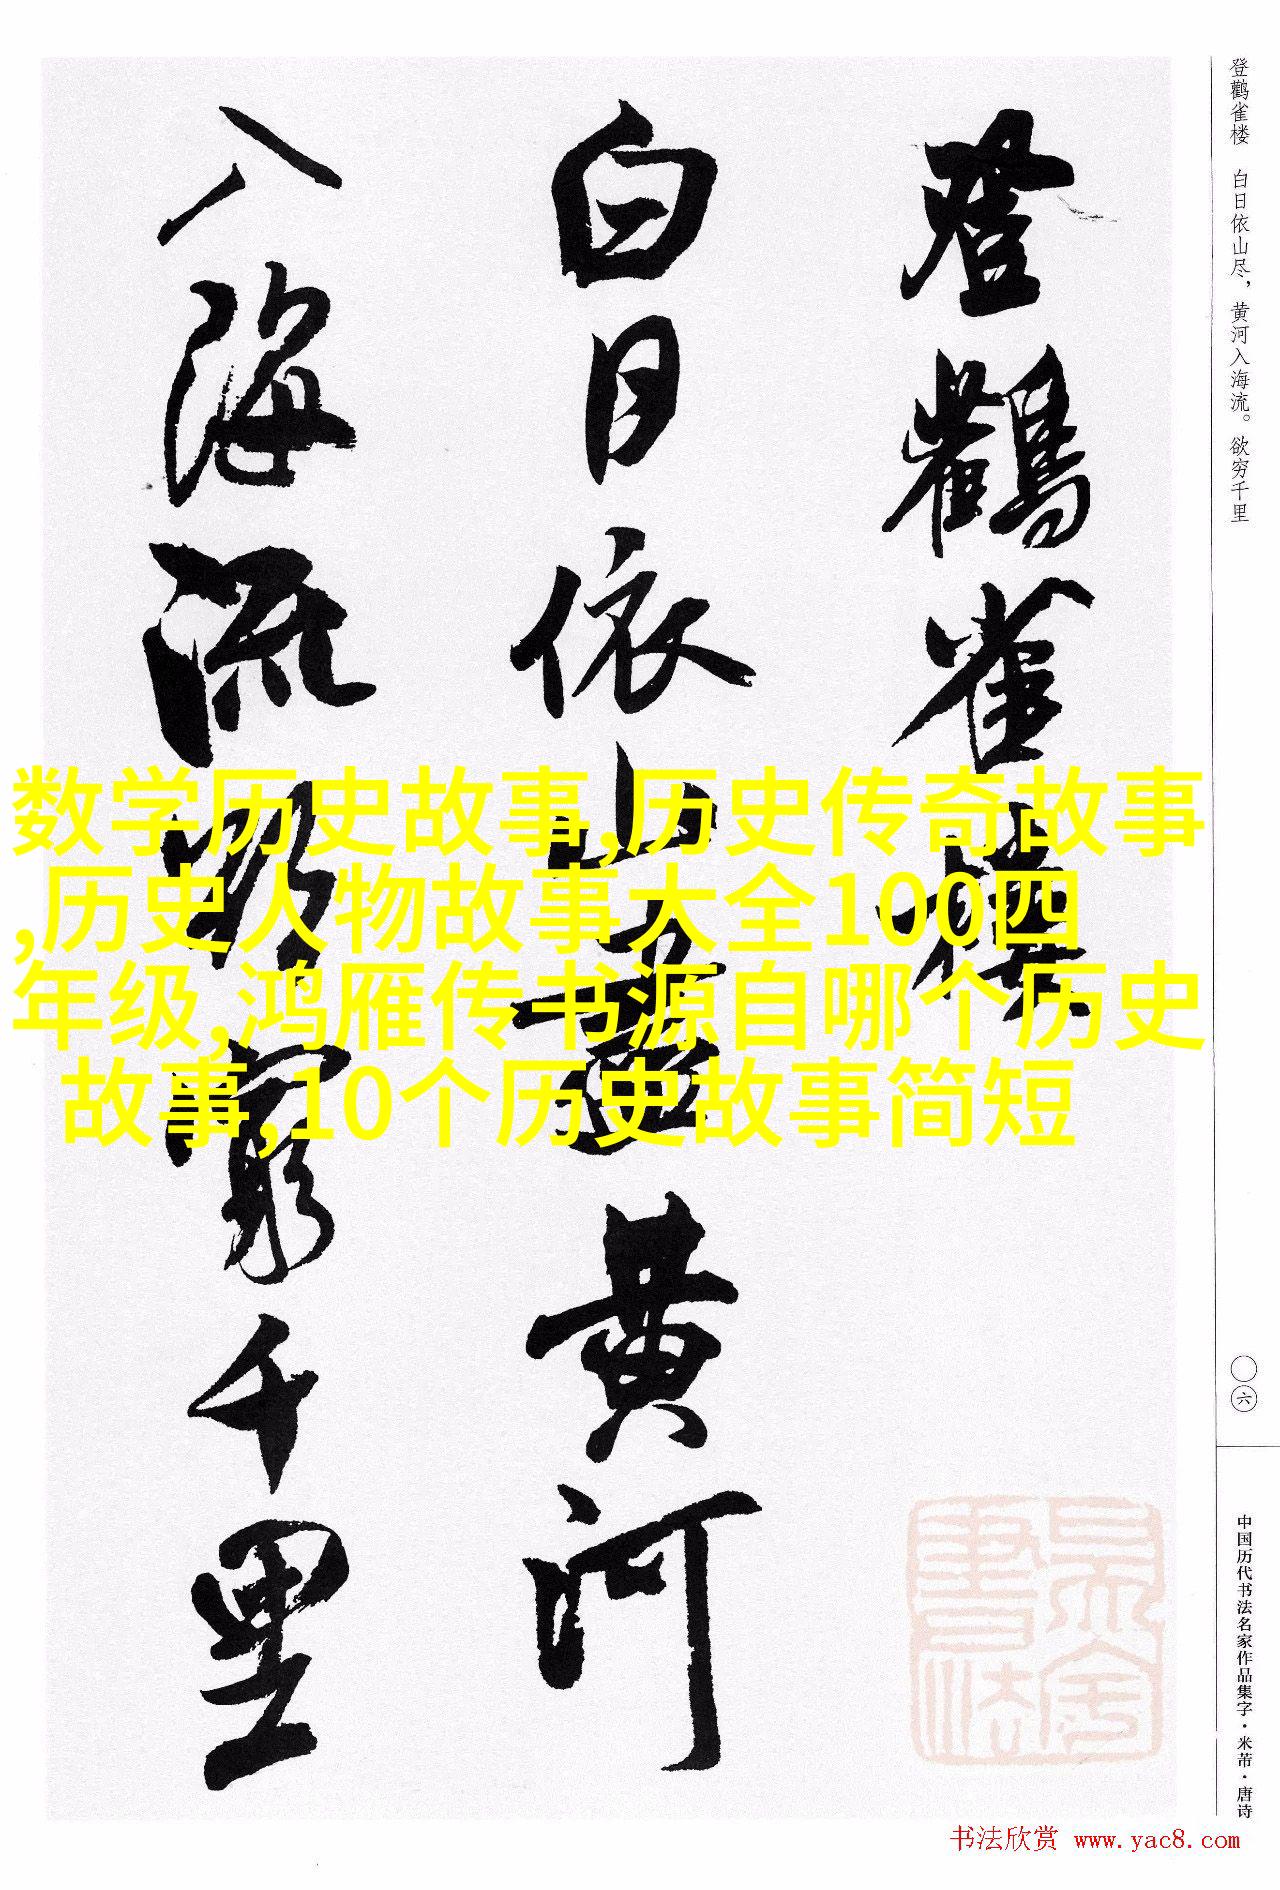 登鹳雀楼　白日依山尽，黄河入海流。欲穷千里
登鸛雀樓
白日依山盡黄河
入海流欲窮千里
数学历史故事,历史传奇故事
,历史人物故事大全100四
年级,鸿雁传书源自哪个历史
故事,10个历史故事简短
〇六
中国历代书法名家作品集字·米芾·唐诗
书法欣赏 www.yac8.com